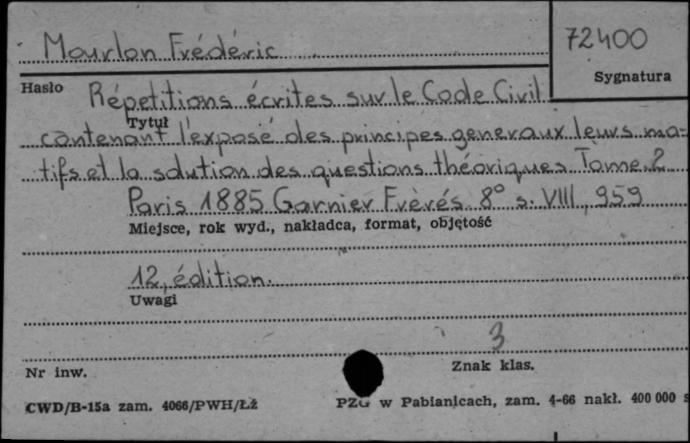 Mourlon Frédéric
72400
Sygnatura
Hasło
Répetitions écrites sur le Code Civil
Tytuł
contenant l'exposé des principes generaux leurs mo=
tifs et la solution des questions théoriques Tome 2
Paris 1885 Garnier Frèrés 8° s. VIII, 959
Miejsce, rok wyd., nakładca, format, objętość
12, édition.
Uwagi
3
Nr inw.
Znak klas.
CWD/B-15a zam. 4066/PWH/Łż
PZG w Pabianicach, zam. 4-66 nakł. 400 000 s